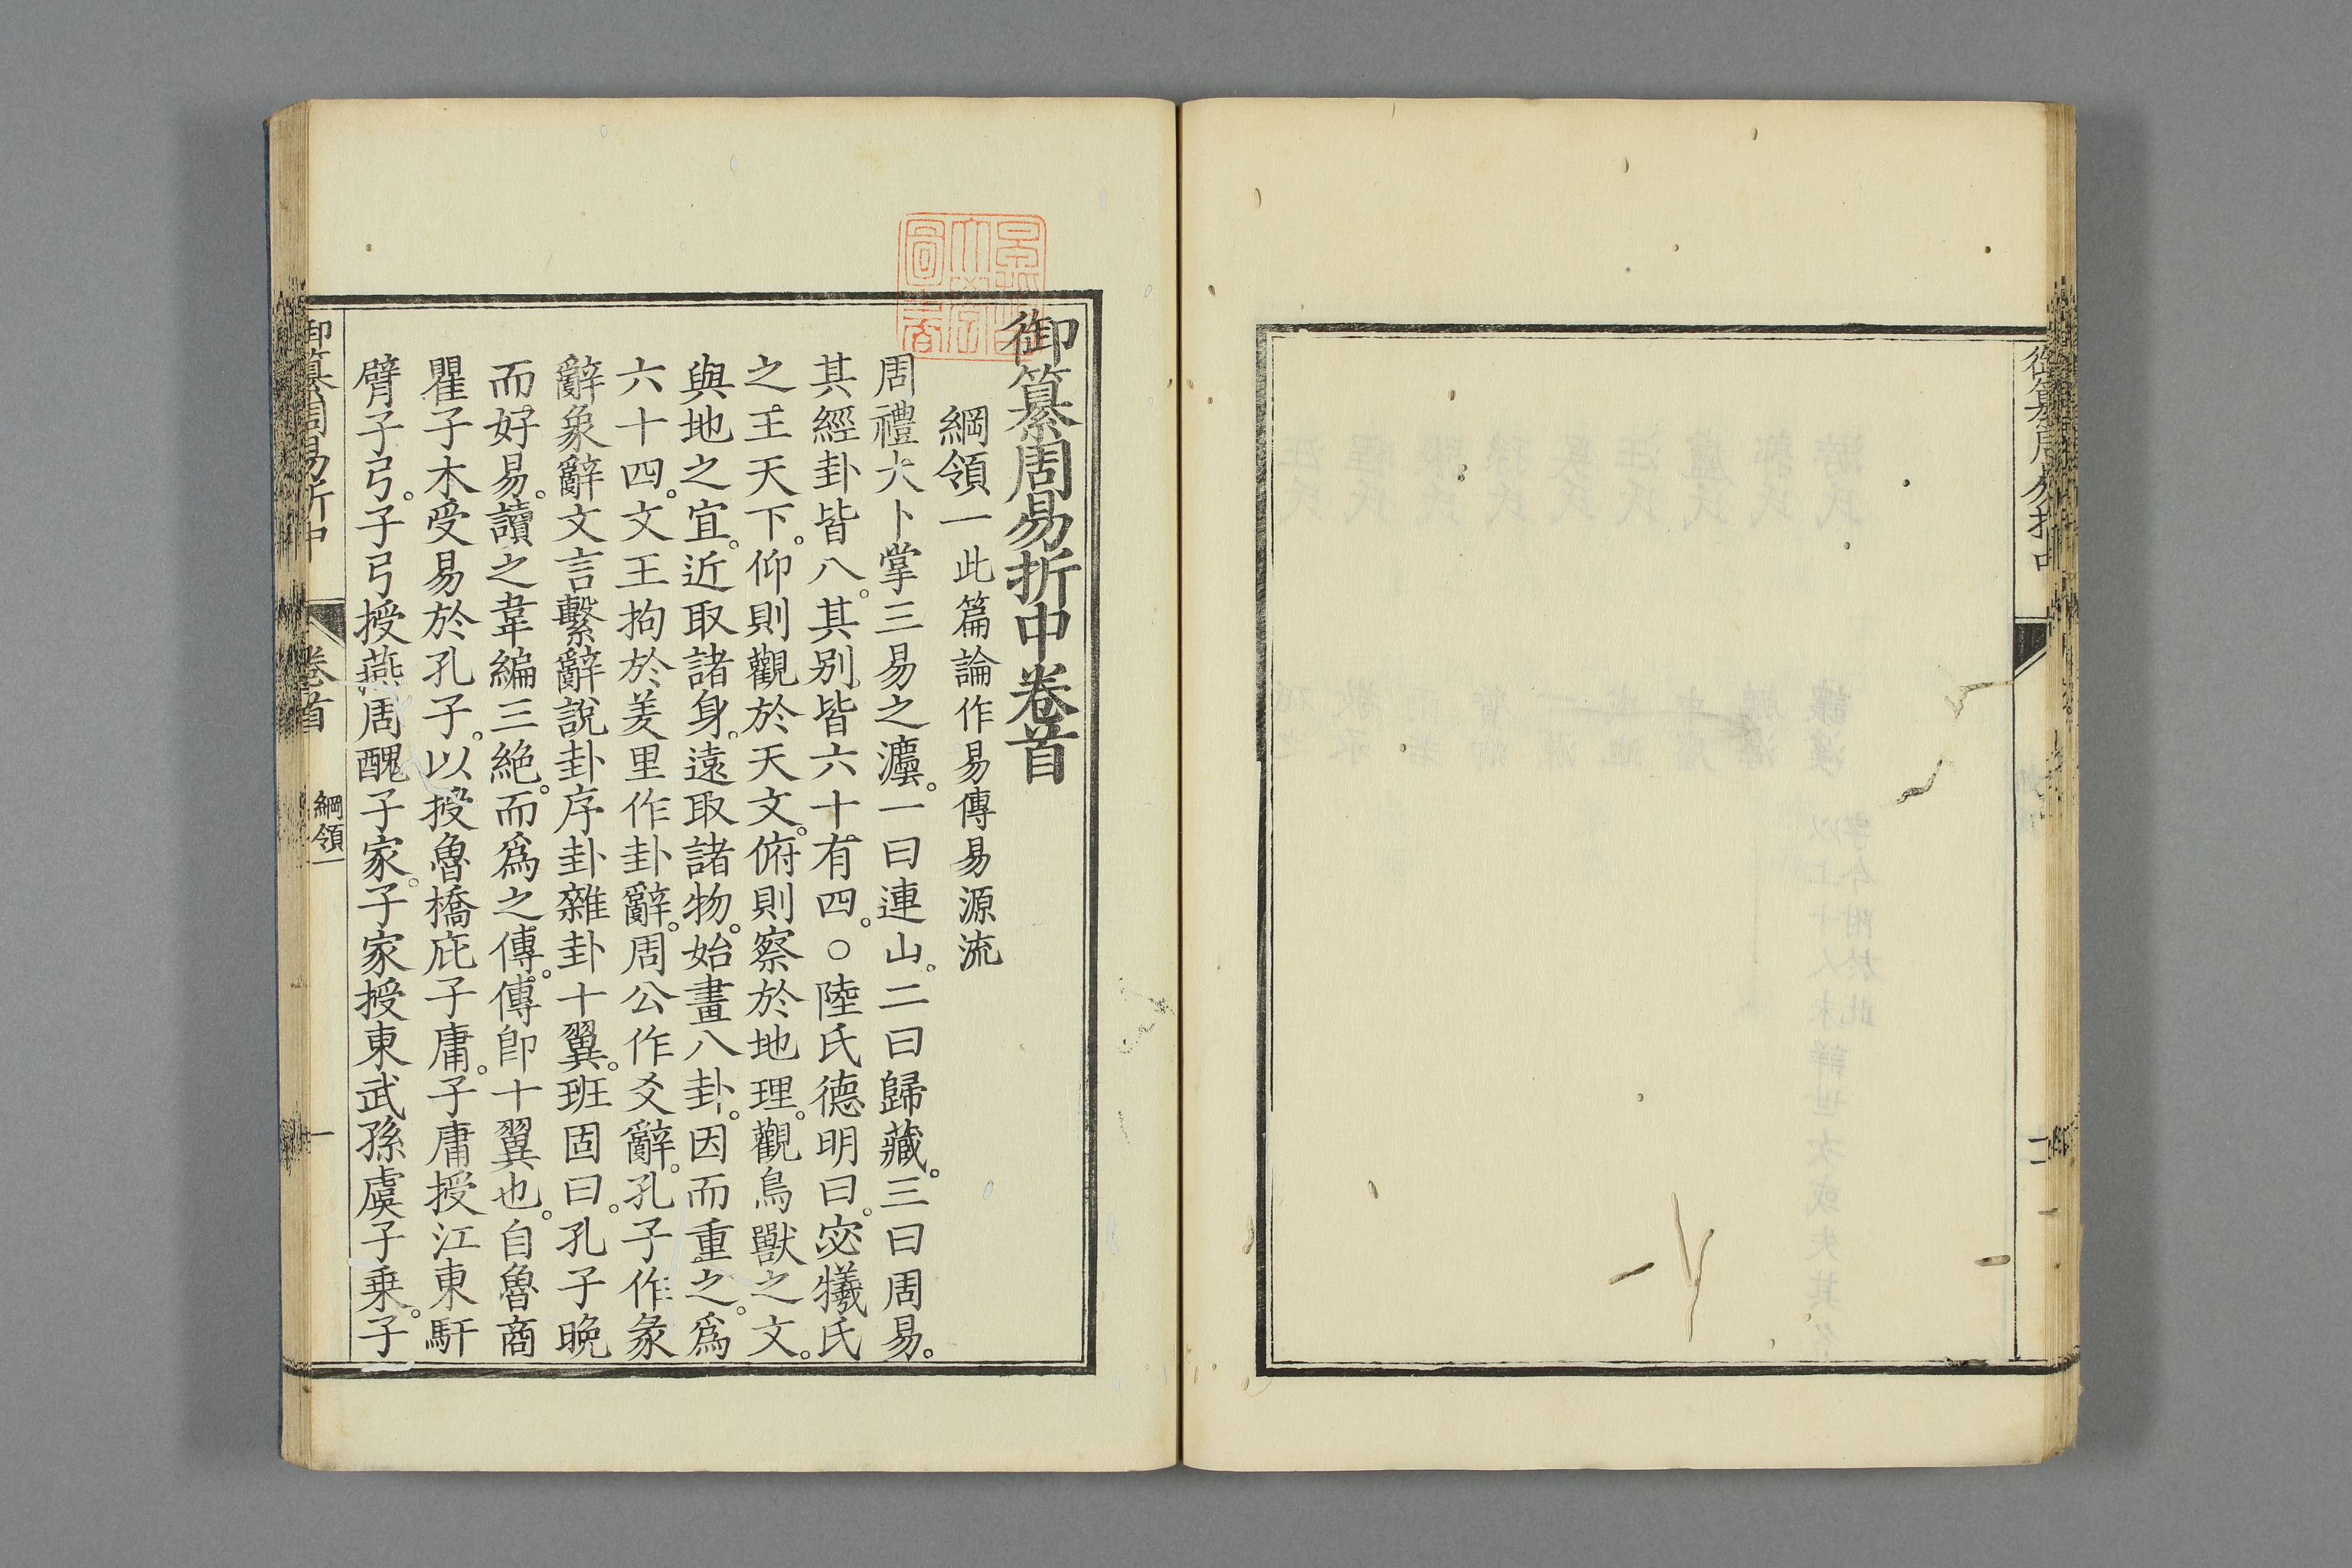 御纂周易折中
御纂周易折中卷首
綱領一此篇論作易傳易源流
周禮大卜掌三易之灋。一曰連山。二曰歸藏。三曰周易。
其經卦皆八。其別皆六十有四。○陸氏德明曰。宓犧氏
之王天下。仰則觀於天文。俯則察於地理。觀鳥獸之文。
與地之宜。近取諸身。遠取諸物。始畫八卦。因而重之。爲
六十四。文王拘於羑里作卦辭。周公作爻辭。孔子作彖
辭象辭文言繫辭說卦序卦雜卦十翼。班固曰。孔子晚
而好易。讀之韋編三絶。而爲之傳。傳卽十翼也。自魯商
瞿子木受易於孔子。以授魯橋庇子庸。子庸授江東馯
臂子弓。子弓授燕周醜子家。子家授東武孫虞子乘。子
御纂周易折中 卷首 綱領一 一